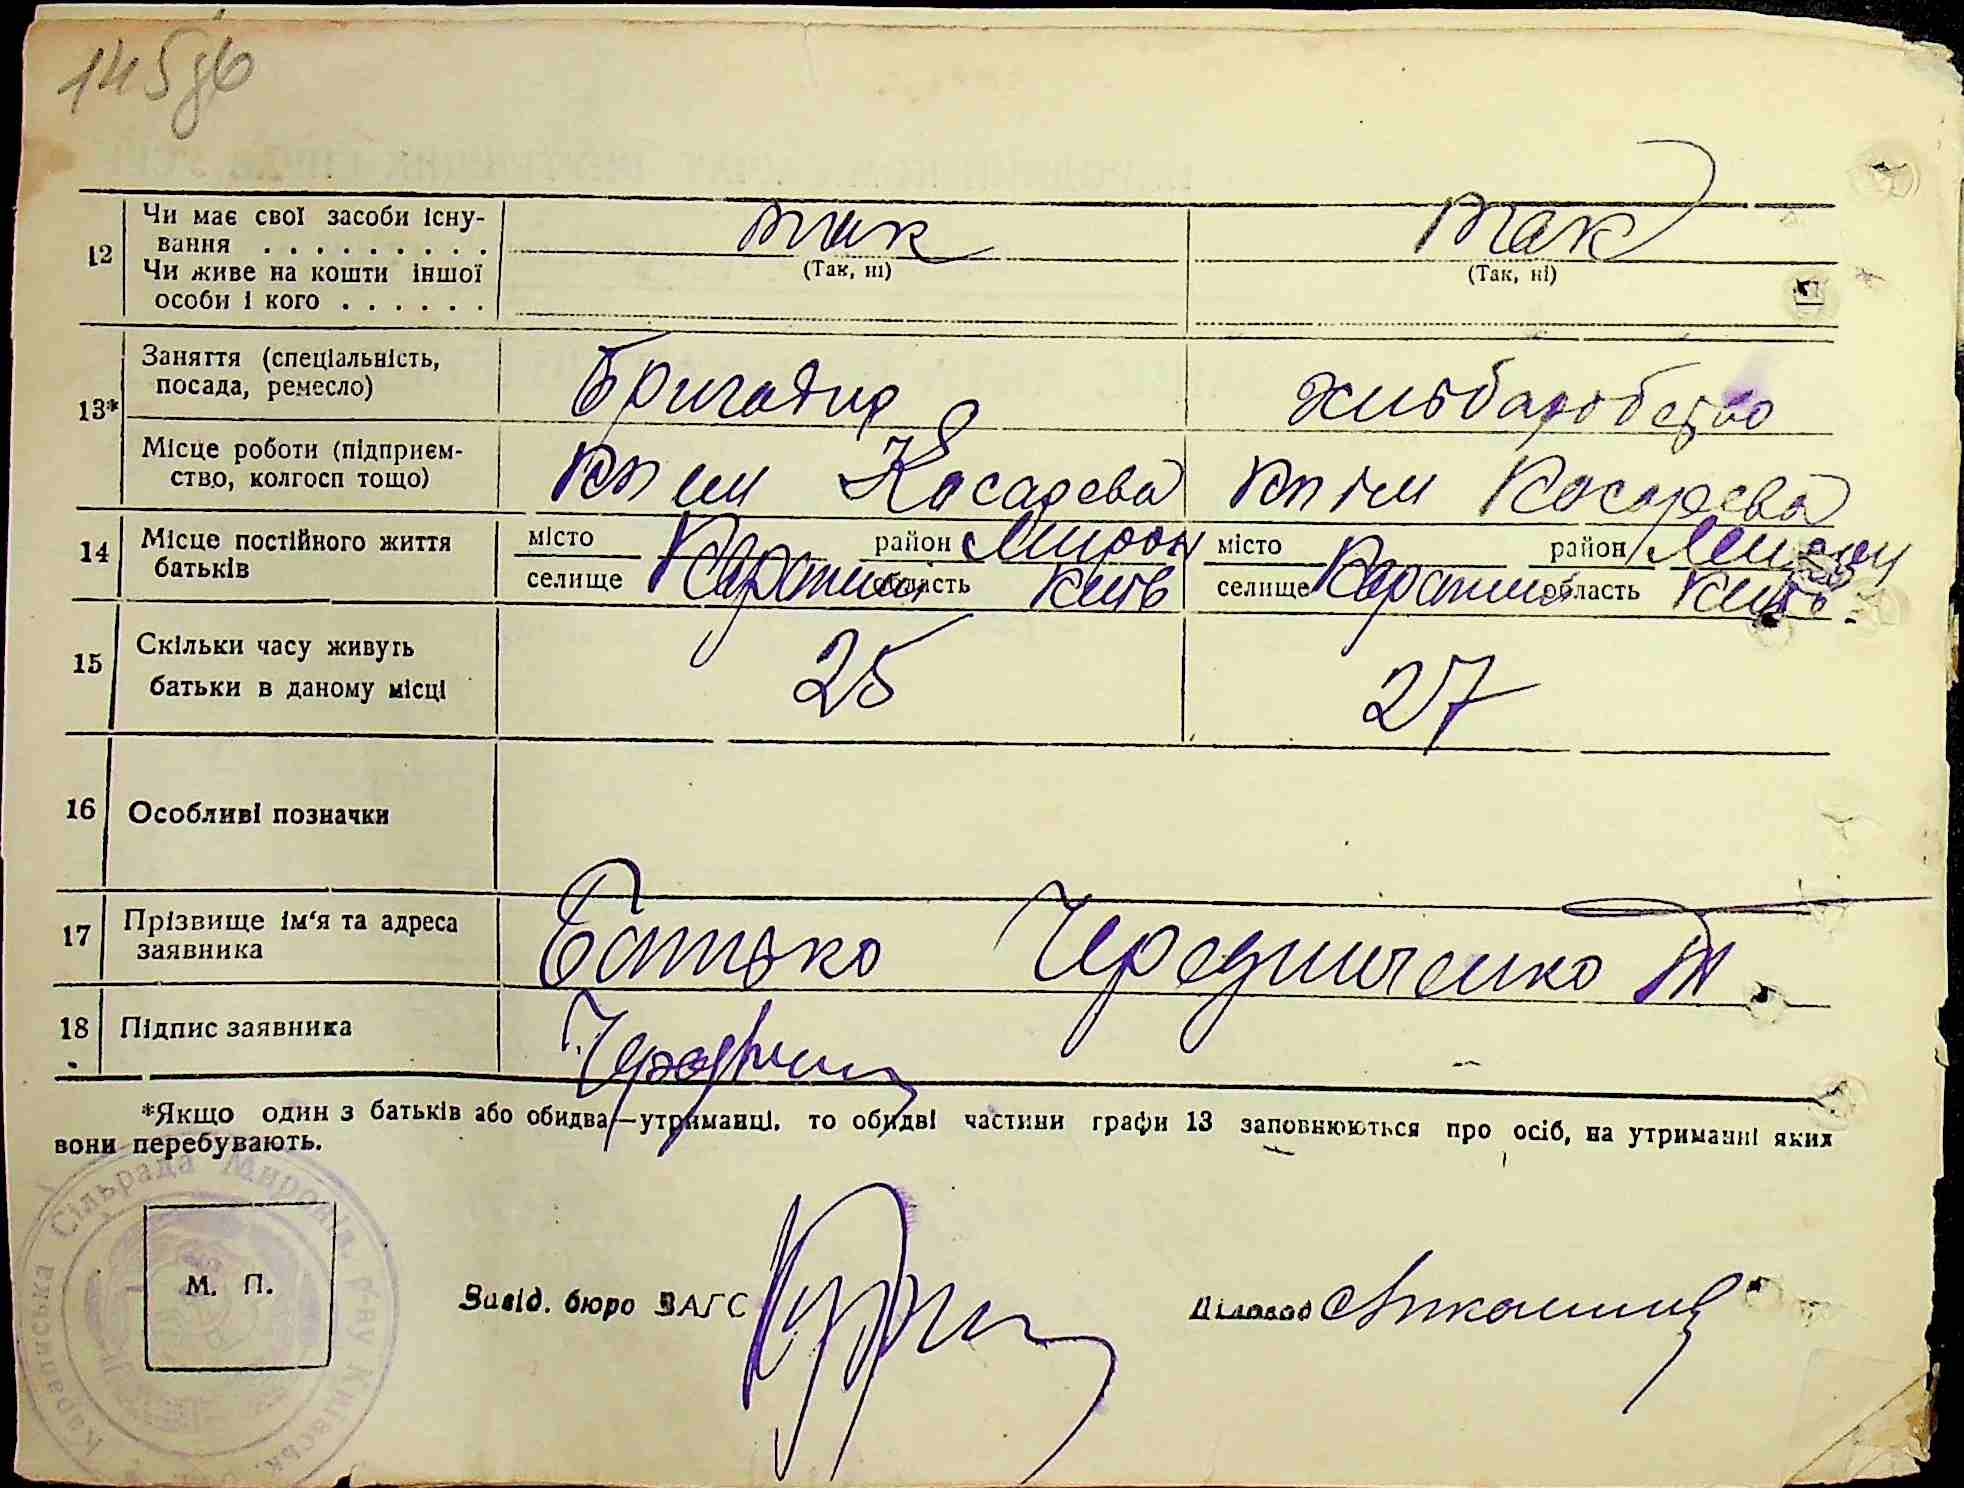 145зв
12 Чи має свої засоби існу- так так
вання . . . . . . . . . (Так, ні) (Так, ні)
Чи живе на кошти іншої
особи і кого . . . . . .
13* Заняття (спеціальність, Бригадир хліборобство
посада, ремесло)
Місце роботи (підприєм- кп ім Косарева кп ім Косарева
ство, колгосп тощо)
14 Місце постійного життя місто район Мирон місто район Мирон
батьків селище Карапиші область Київ селище Карапиші область Київ
15 Скільки часу живуть 25 27
батьки в даному місці
16 Особливі позначки
17 Прізвище ім'я та адреса Батько Чередниченко Т.
заявника
18 Підпис заявника
*Якщо один з батьків або обидва—утриманці, то обидві частини графи 13 заповнюються про осіб, на утриманні яких
вони перебувають.
Караписька Сільрада Миронів. р-ну Київськ.
М. П. Завід. бюро ЗАГС Діловод